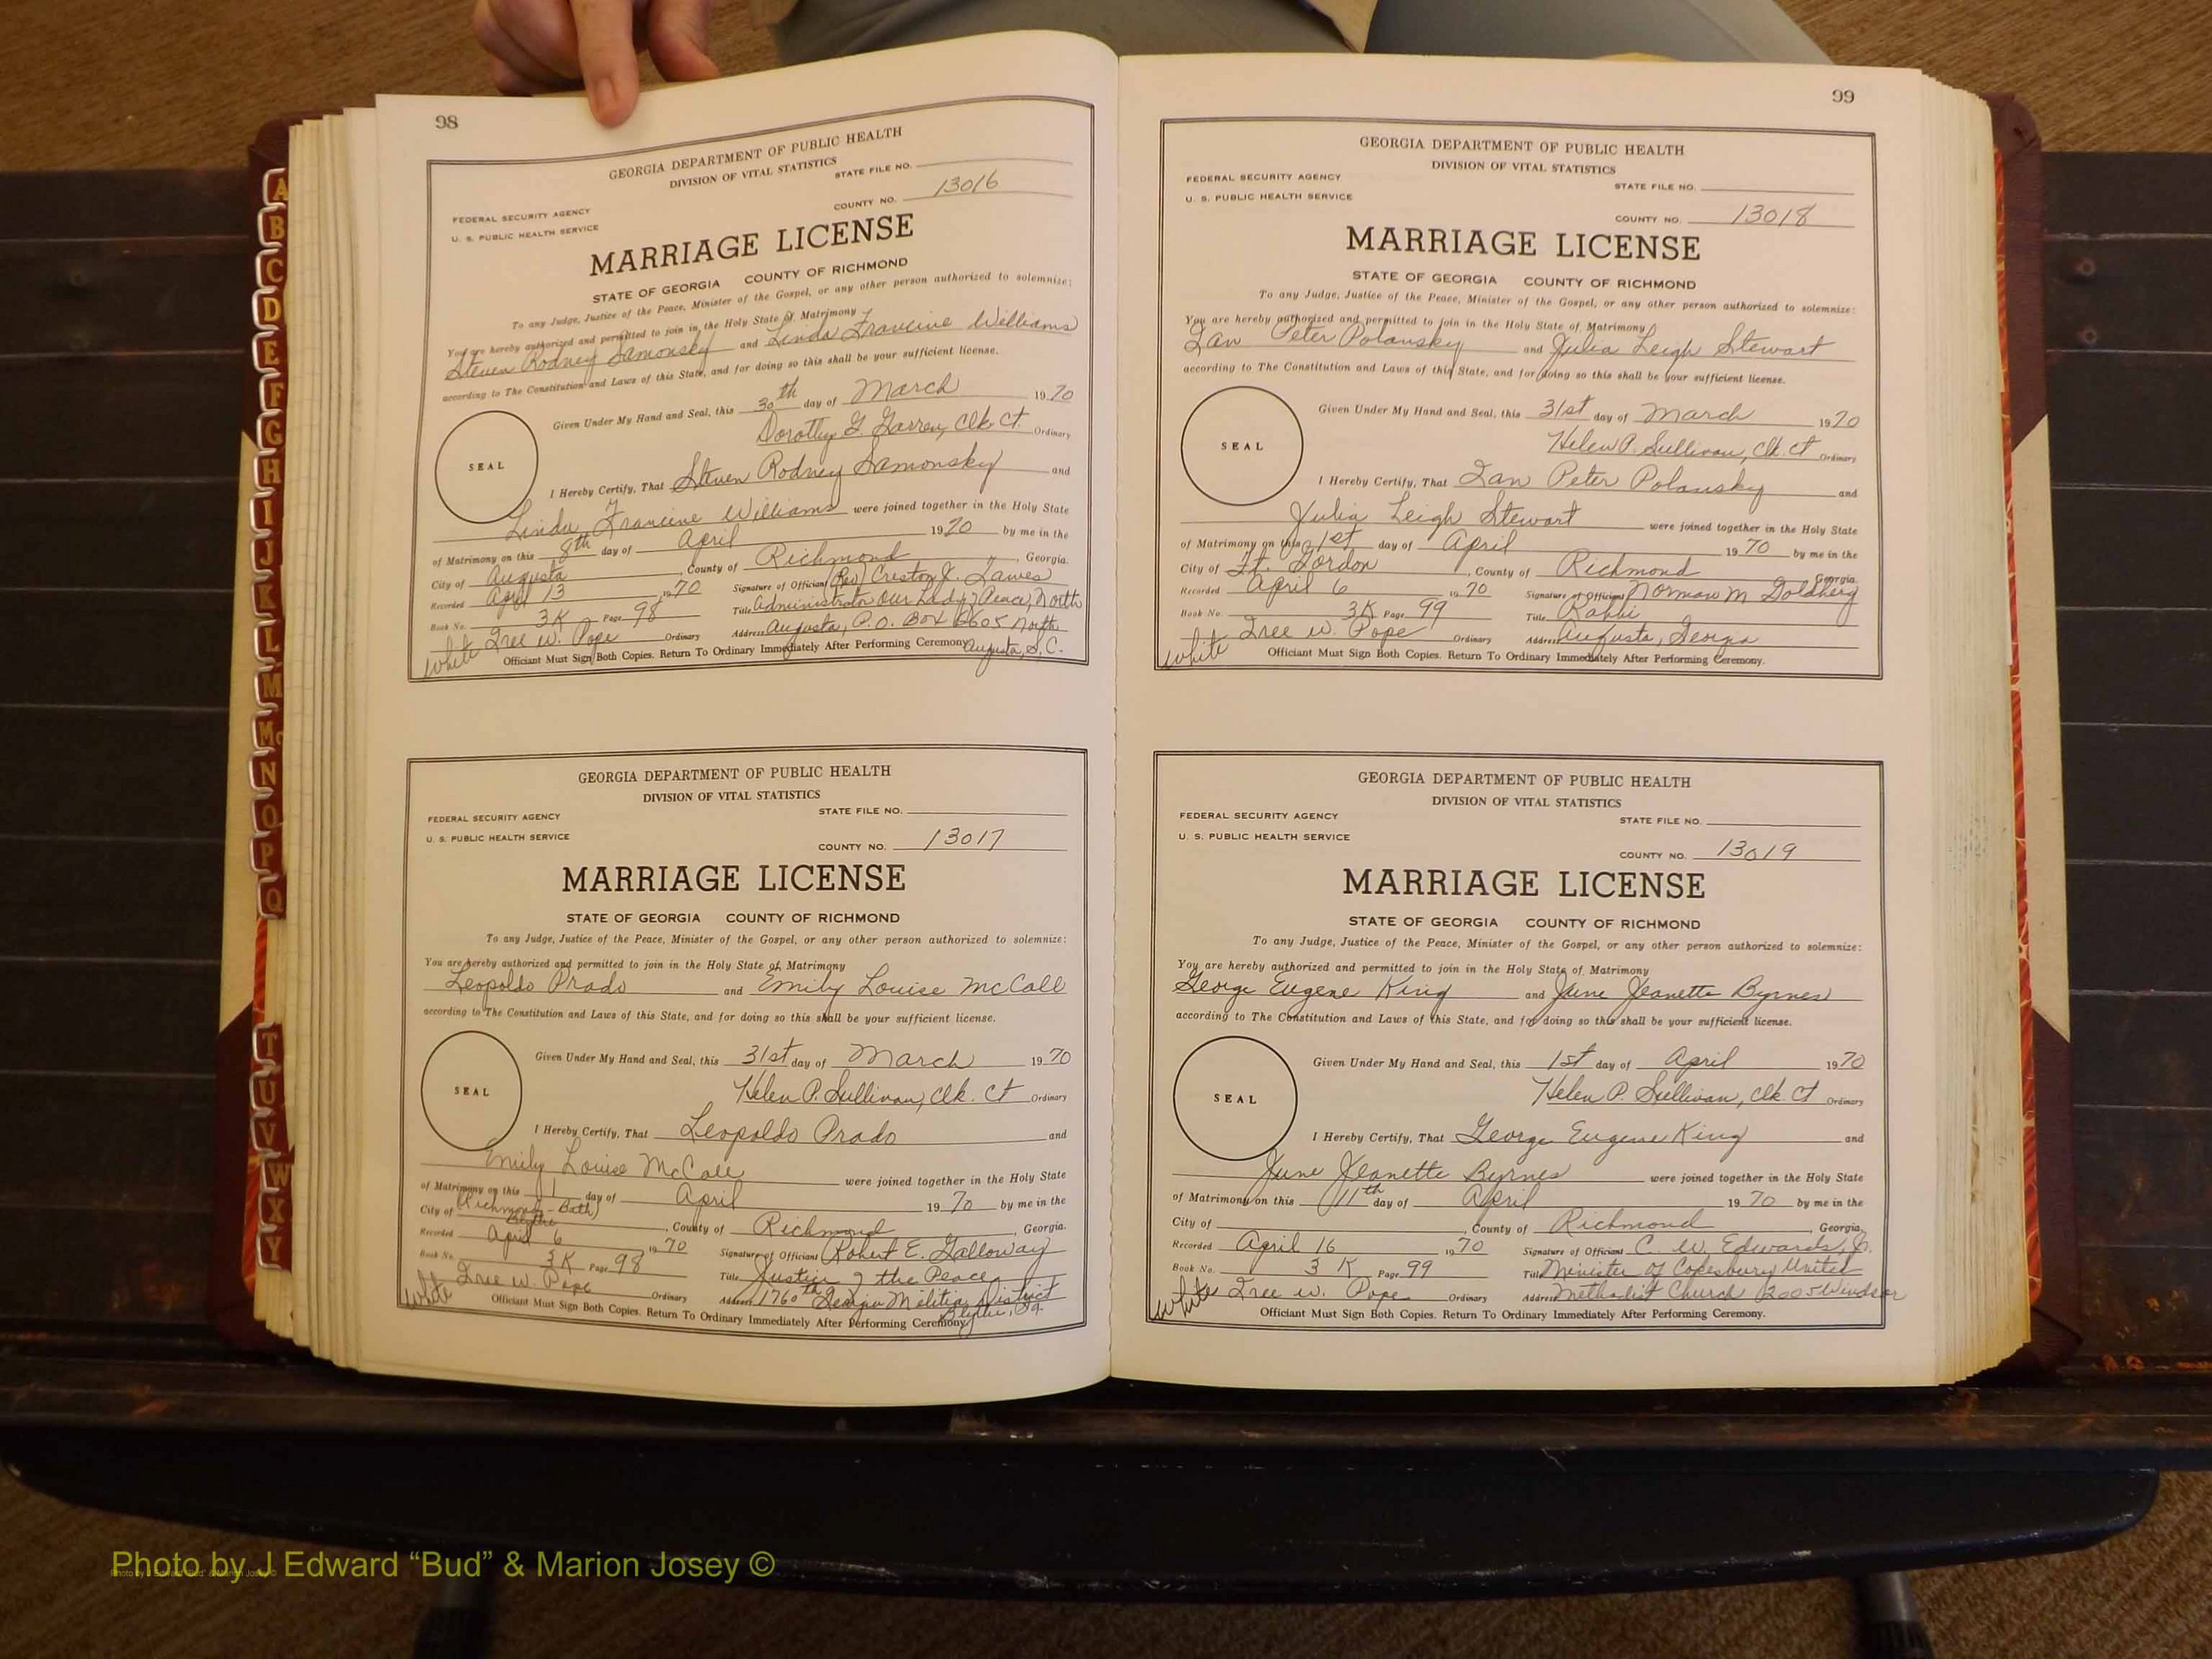 98
GEORGIA DEPARTMENT OF PUBLIC HEALTH
DIVISION OF VITAL STATISTICS
STATE FILE NO.
FEDERAL SECURITY AGENCY
U. S. PUBLIC HEALTH SERVICE
COUNTY NO. 13016
MARRIAGE LICENSE
STATE OF GEORGIA COUNTY OF RICHMOND
To any Judge, Justice of the Peace, Minister of the Gospel, or any other person authorized to solemnize:
You are hereby authorized and permitted to join in the Holy State of Matrimony
Steven Rodney Samonsky and Linda Francine Williams
according to The Constitution and Laws of this State, and for doing so this shall be your sufficient license.
Given Under My Hand and Seal, this 30th day of March 1970
Dorothy G. Garren, Clk. Ct. Ordinary
SEAL
I Hereby Certify, That Steven Rodney Samonsky and
Linda Francine Williams were joined together in the Holy State
of Matrimony on this 8th day of April 1970 by me in the
City of Augusta, County of Richmond, Georgia.
Recorded April 13 1970 Signature of Officiant (Rev) Creston J. Tawes
Book No. 3K Page 98 Title Administrator Our Lady of Peace, North
white Tree W. Pope Ordinary Address Augusta, P.O. Box 6605 North
Augusta, S.C.
Officiant Must Sign Both Copies. Return To Ordinary Immediately After Performing Ceremony
GEORGIA DEPARTMENT OF PUBLIC HEALTH
DIVISION OF VITAL STATISTICS
STATE FILE NO.
FEDERAL SECURITY AGENCY
U. S. PUBLIC HEALTH SERVICE
COUNTY NO. 13017
MARRIAGE LICENSE
STATE OF GEORGIA COUNTY OF RICHMOND
To any Judge, Justice of the Peace, Minister of the Gospel, or any other person authorized to solemnize:
You are hereby authorized and permitted to join in the Holy State of Matrimony
Leopoldo Prado and Emily Louise McCall
according to The Constitution and Laws of this State, and for doing so this shall be your sufficient license.
Given Under My Hand and Seal, this 31st day of March 1970
Helen P. Sullivan, Clk. Ct Ordinary
SEAL
I Hereby Certify, That Leopoldo Prado and
Emily Louise McCall were joined together in the Holy State
of Matrimony on this 1 day of April 1970 by me in the
(Richmond - Bath)
City of Blythe, County of Richmond, Georgia.
Recorded April 6 1970 Signature of Officiant Robert E. Galloway
Book No. 3K Page 98 Title Justice of the Peace
white Tree W. Pope Ordinary Address 1760th Georgia Militia District
Blythe, Ga.
Officiant Must Sign Both Copies. Return To Ordinary Immediately After Performing Ceremony
99
GEORGIA DEPARTMENT OF PUBLIC HEALTH
DIVISION OF VITAL STATISTICS
FEDERAL SECURITY AGENCY
STATE FILE NO.
U. S. PUBLIC HEALTH SERVICE
COUNTY NO. 13018
MARRIAGE LICENSE
STATE OF GEORGIA COUNTY OF RICHMOND
To any Judge, Justice of the Peace, Minister of the Gospel, or any other person authorized to solemnize:
You are hereby authorized and permitted to join in the Holy State of Matrimony
Ian Peter Polansky and Julia Leigh Stewart
according to The Constitution and Laws of this State, and for doing so this shall be your sufficient license.
Given Under My Hand and Seal, this 31st day of March 1970
Helen P. Sullivan, Clk. Ct Ordinary
SEAL
I Hereby Certify, That Ian Peter Polansky and
Julia Leigh Stewart were joined together in the Holy State
of Matrimony on this 1st day of April 1970 by me in the
City of Ft. Gordon, County of Richmond Georgia
Recorded April 6 1970 Signature of Officiant Norman M Goldberg
Book No. 3K Page 99 Title Rabbi
white Tree W. Pope Ordinary Address Augusta, Georgia
Officiant Must Sign Both Copies. Return To Ordinary Immediately After Performing Ceremony.
GEORGIA DEPARTMENT OF PUBLIC HEALTH
DIVISION OF VITAL STATISTICS
FEDERAL SECURITY AGENCY
STATE FILE NO.
U. S. PUBLIC HEALTH SERVICE
COUNTY NO. 13019
MARRIAGE LICENSE
STATE OF GEORGIA COUNTY OF RICHMOND
To any Judge, Justice of the Peace, Minister of the Gospel, or any other person authorized to solemnize:
You are hereby authorized and permitted to join in the Holy State of Matrimony
George Eugene King and June Jeanette Byrnes
according to The Constitution and Laws of this State, and for doing so this shall be your sufficient license.
Given Under My Hand and Seal, this 1st day of April 1970
Helen P. Sullivan, Clk. Ct Ordinary
SEAL
I Hereby Certify, That George Eugene King and
June Jeanette Byrnes were joined together in the Holy State
of Matrimony on this 11th day of April 1970 by me in the
City of , County of Richmond, Georgia.
Recorded April 16 1970 Signature of Officiant C. W. Edwards, Jr.
Book No. 3K Page 99 Title Minister of Copesbury United
white Tree W. Pope Ordinary Address Methodist Church 2005 Windsor
Officiant Must Sign Both Copies. Return To Ordinary Immediately After Performing Ceremony.
A
B
C
D
E
F
G
H
I
J
K
L
M
Mc
N
O
P
Q
T
U
V
W
X
Y
Photo by J Edward “Bud” & Marion Josey ©